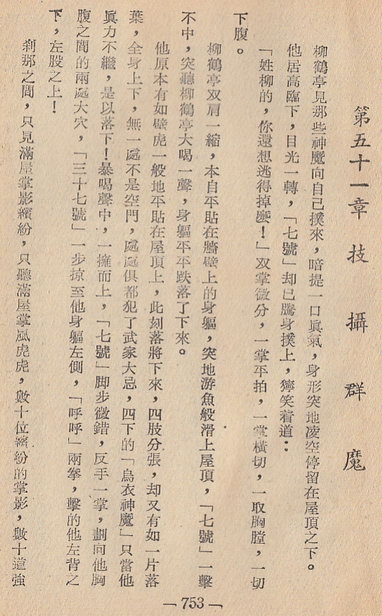 第五十一章　技攝群魔
柳鶴亭見那些神魔向自己撲來，暗提一口眞氣，身形突地凌空停留在屋頂之下。
他居高臨下，目光一轉，「七號」却已騰身撲上，獰笑着道：
「姓柳的，你還想逃得掉麼！」双掌微分，一掌平拍，一掌橫切，一取胸膛，一切
下腹。
柳鶴亭双肩一縮，本自平貼在牆壁上的身軀，突地游魚般滑上屋頂，「七號」一擊
不中，突聽柳鶴亭大喝一聲，身軀平平跌落了下來。
他原本有如壁虎一般地平貼在屋頂上，此刻落將下來，四肢分張，却又有如一片落
葉，全身上下，無一處不是空門，處處俱都犯了武家大忌，四下的「烏衣神魔」只當他
眞力不繼，是以落下！暴喝聲中，一擁而上，「七號」脚步微錯，反手一掌，劃向他胸
腹之間的兩處大穴，「三十七號」一步掠至他身軀左側，「呼呼」兩拳，擊的他左背之
下，左股之上！
刹那之間，只見滿屋掌影繽紛，只聽滿屋掌風虎虎，數十位繽紛的掌影，數十道強
—753—